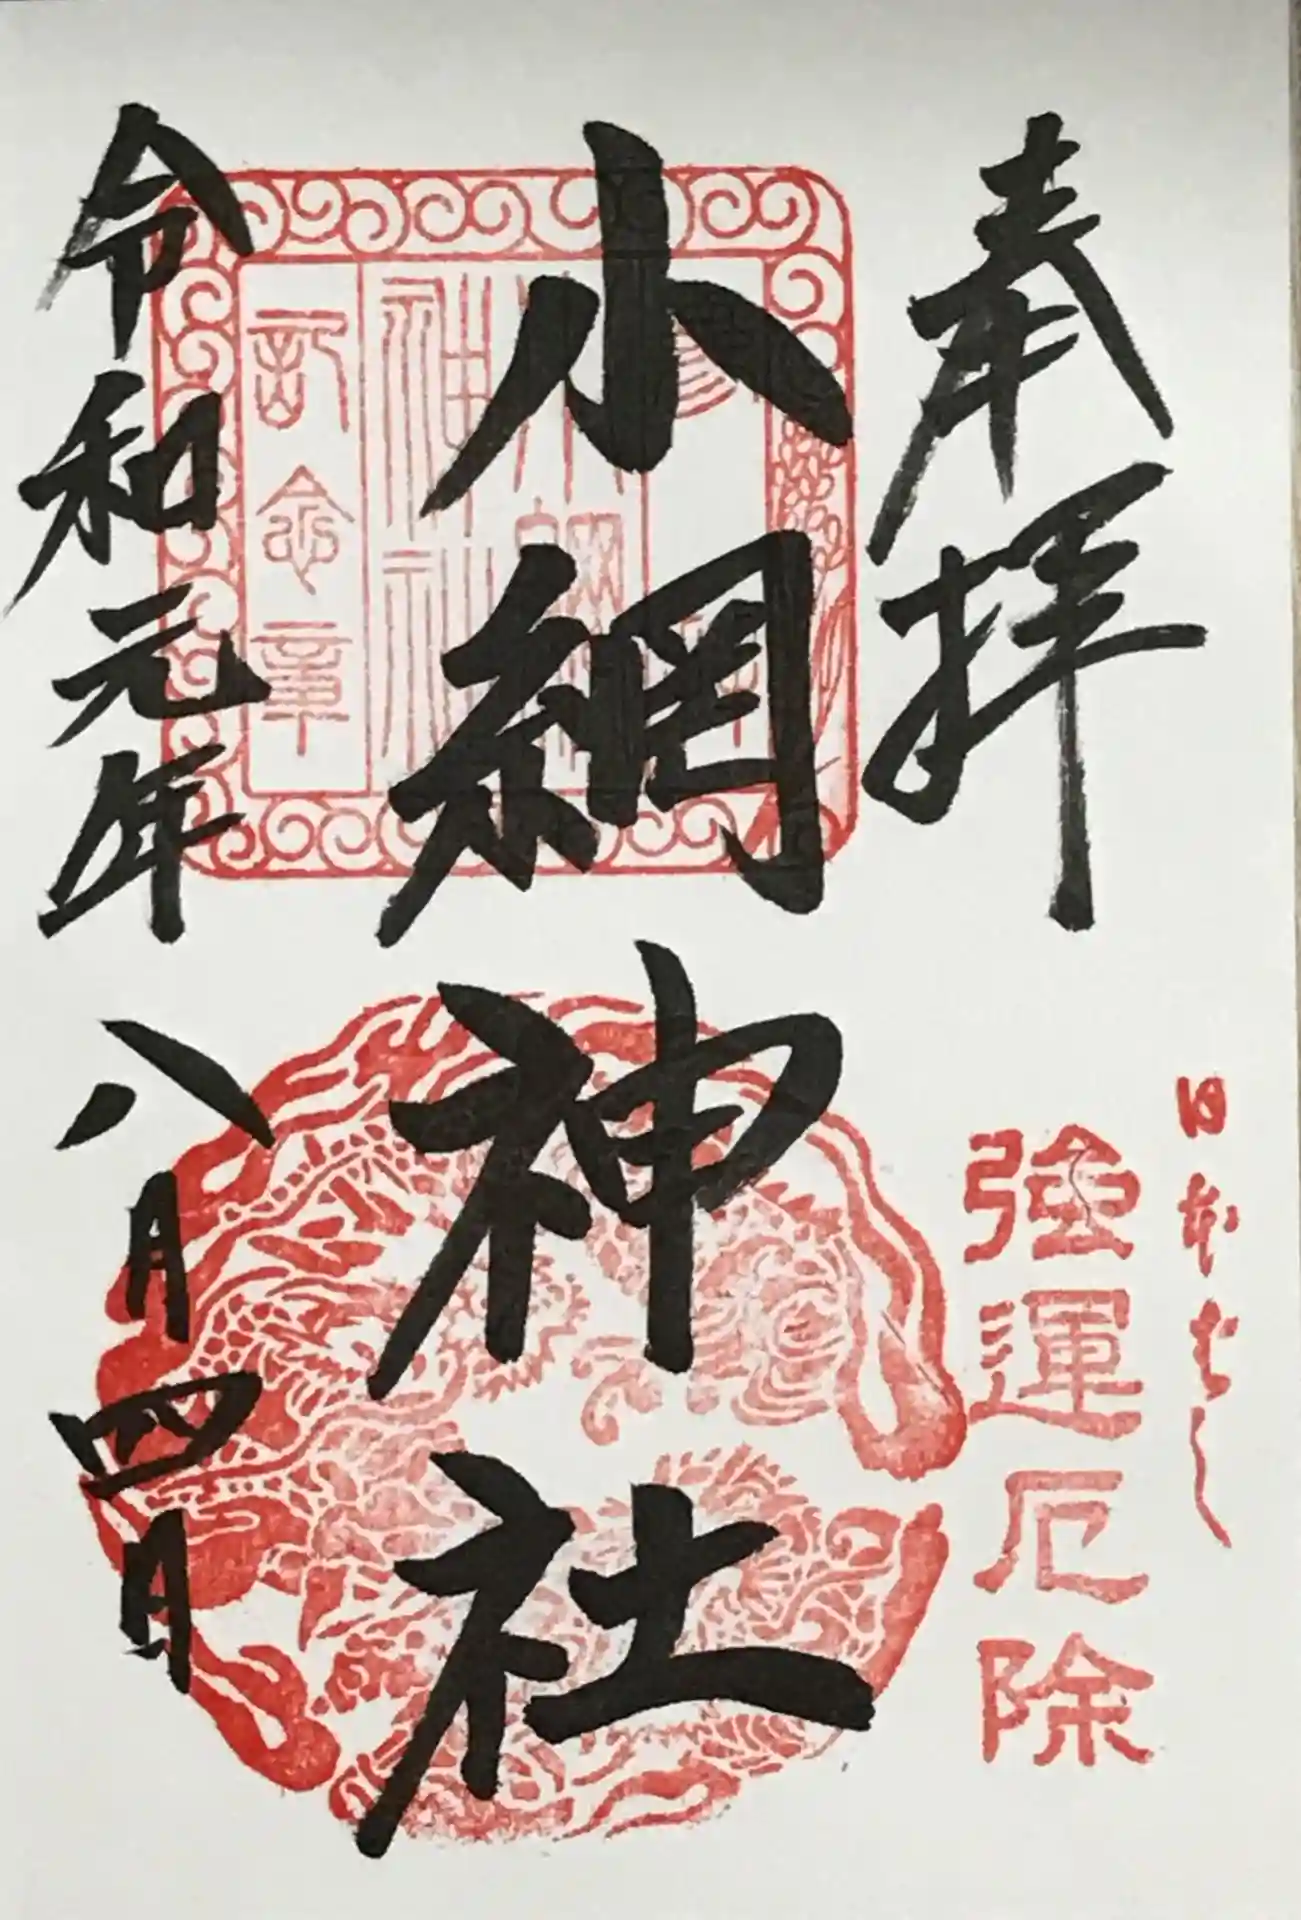 奉拝
日本はし
強運厄除
小網神社
令和元年八月四日
参拝
小網神社
記念章